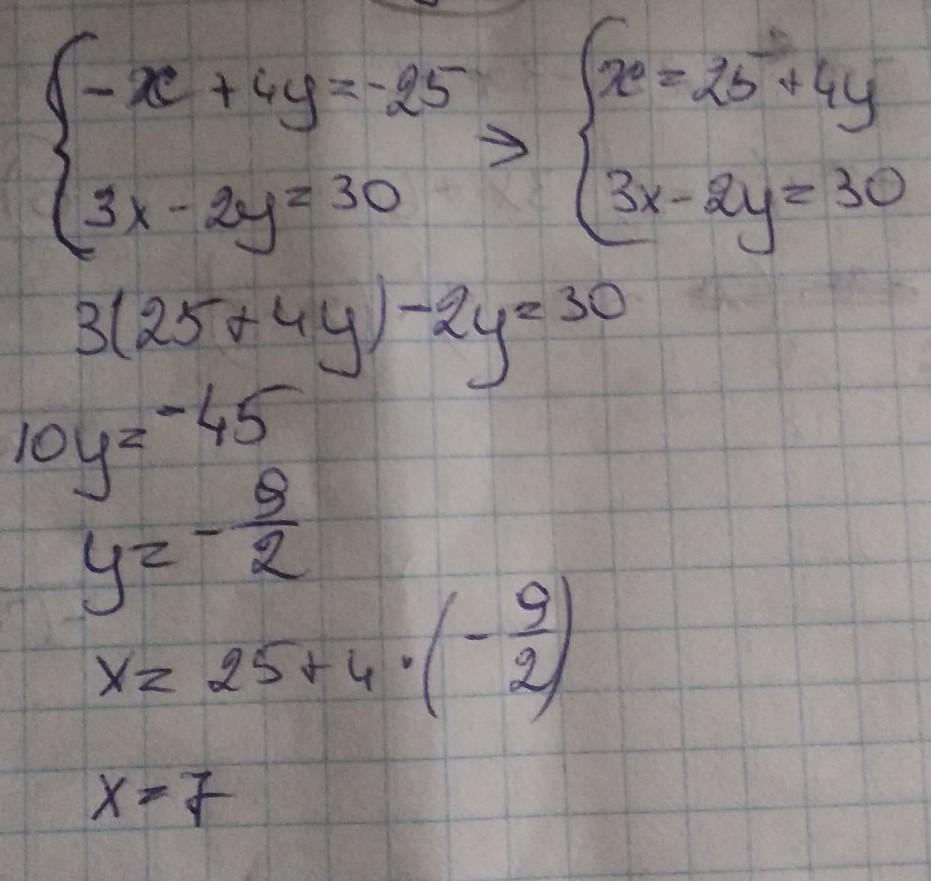 {-x + 4y = -25 → {x = 25 + 4y
{3x - 2y = 30 {3x - 2y = 30
3(25 + 4y) - 2y = 30
10y = -45
y = - 9/2
x = 25 + 4 · (- 9/2)
x = 7